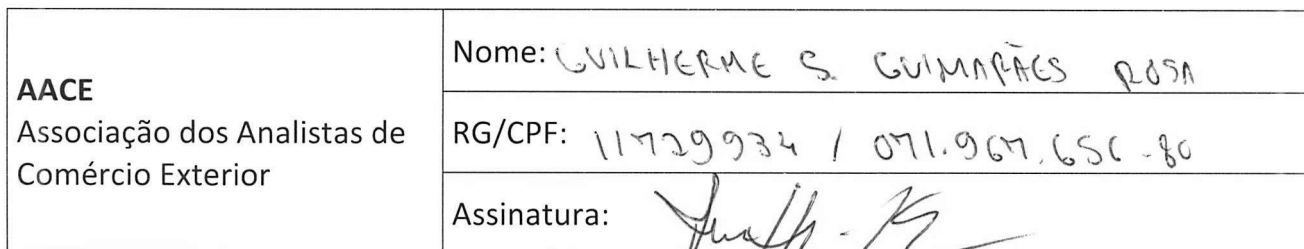 AACE
Associação dos Analistas de
Comércio Exterior
Nome: GUILHERME S. GUIMARÃES ROSA
RG/CPF: 11729934 / 071.967.656-80
Assinatura: